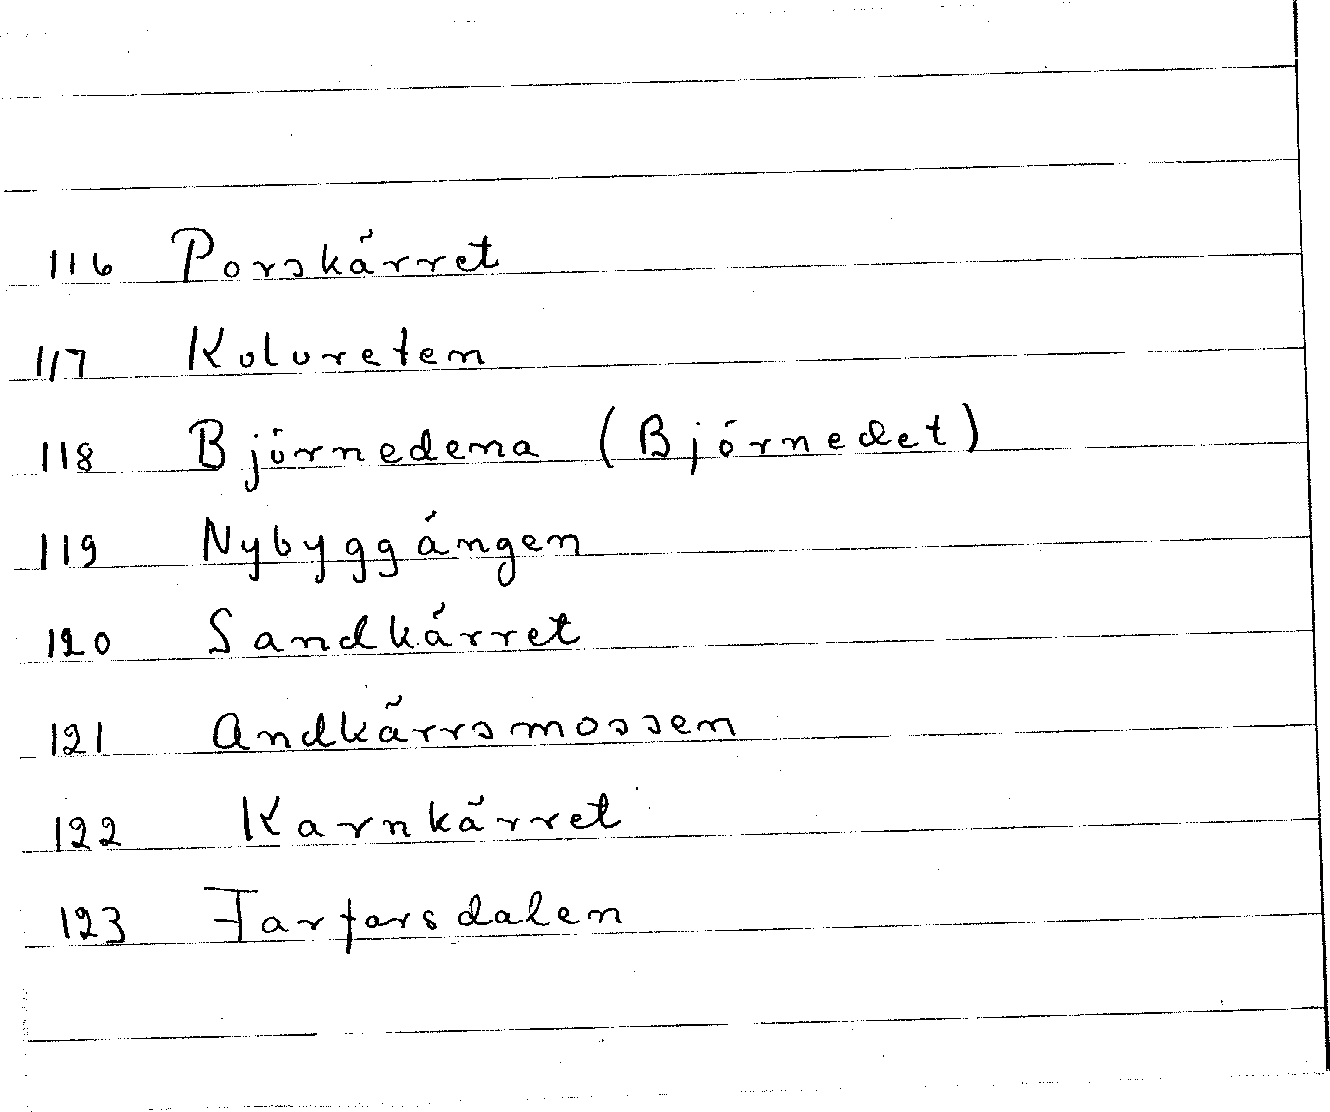 116 Porskärret
117 Kolvreten
118 Björnedena (Björnedet)
119 Nybyggängen
120 Sandkärret
121 Andkärrsmossen
122 Karnkärret
123 Farfarsdalen